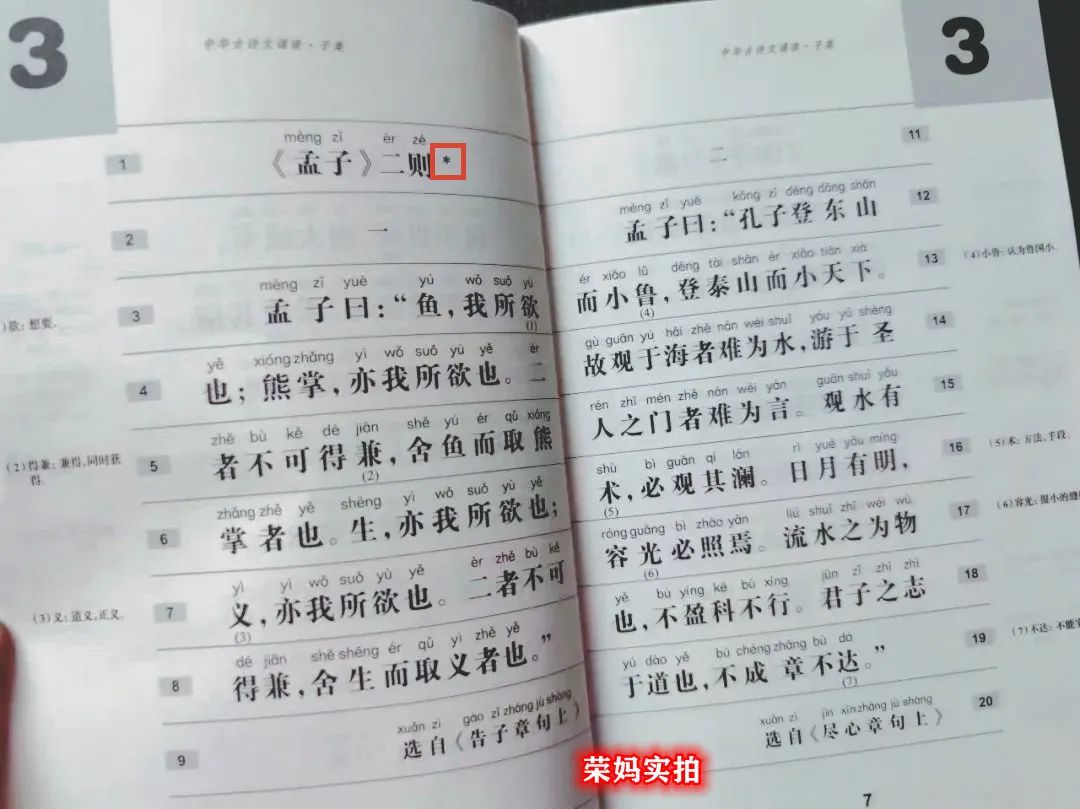 3
中华古诗文诵读·子集
mèng zǐ èr zé
1
《孟子》二则*
2
一
mèng zǐ yuē yú wǒ suǒ yù
3
孟子曰：“鱼，我所欲
(1)
yě xióng zhǎng yì wǒ suǒ yù yě èr
4
也；熊掌，亦我所欲也。二
zhě bù kě dé jiān shě yú ér qǔ xióng
5
者不可得兼，舍鱼而取熊
(2)
zhǎng zhě yě shēng yì wǒ suǒ yù yě
6
掌者也。生，亦我所欲也；
yì yì wǒ suǒ yù yě èr zhě bù kě
7
义，亦我所欲也。二者不可
(3)
dé jiān shě shēng ér qǔ yì zhě yě
8
得兼，舍生而取义者也。”
xuǎn zì gào zǐ zhāng jù shàng
9
选自《告子章句上》
)欲：想要。
(2)得兼：兼得，同时获
得。
(3)义：道义，正义。
3
中华古诗文诵读·子集
11
二
mèng zǐ yuē kǒng zǐ dēng dōng shān
12
孟子曰：“孔子登东山
ér xiǎo lǔ dēng tài shān ér xiǎo tiān xià
13
而小鲁，登泰山而小天下。
(4)
gù guān yú hǎi zhě nán wéi shuǐ yóu yú shèng
14
故观于海者难为水，游于圣
rén zhī mén zhě nán wéi yán guān shuǐ yǒu
15
人之门者难为言。观水有
shù bì guān qí lán rì yuè yǒu míng
16
术，必观其澜。日月有明，
(5)
róng guāng bì zhào yān liú shuǐ zhī wéi wù
17
容光必照焉。流水之为物
(6)
yě bù yíng kē bù xíng jūn zǐ zhī zhì
18
也，不盈科不行。君子之志
yú dào yě bù chéng zhāng bù dá
19
于道也，不成章不达。”
(7)
xuǎn zì jìn xīn zhāng jù shàng
20
选自《尽心章句上》
(4)小鲁：认为鲁国小。
(5)术：方法，手段。
(6)容光：很小的缝
(7)不达：不能
7
荣妈实拍